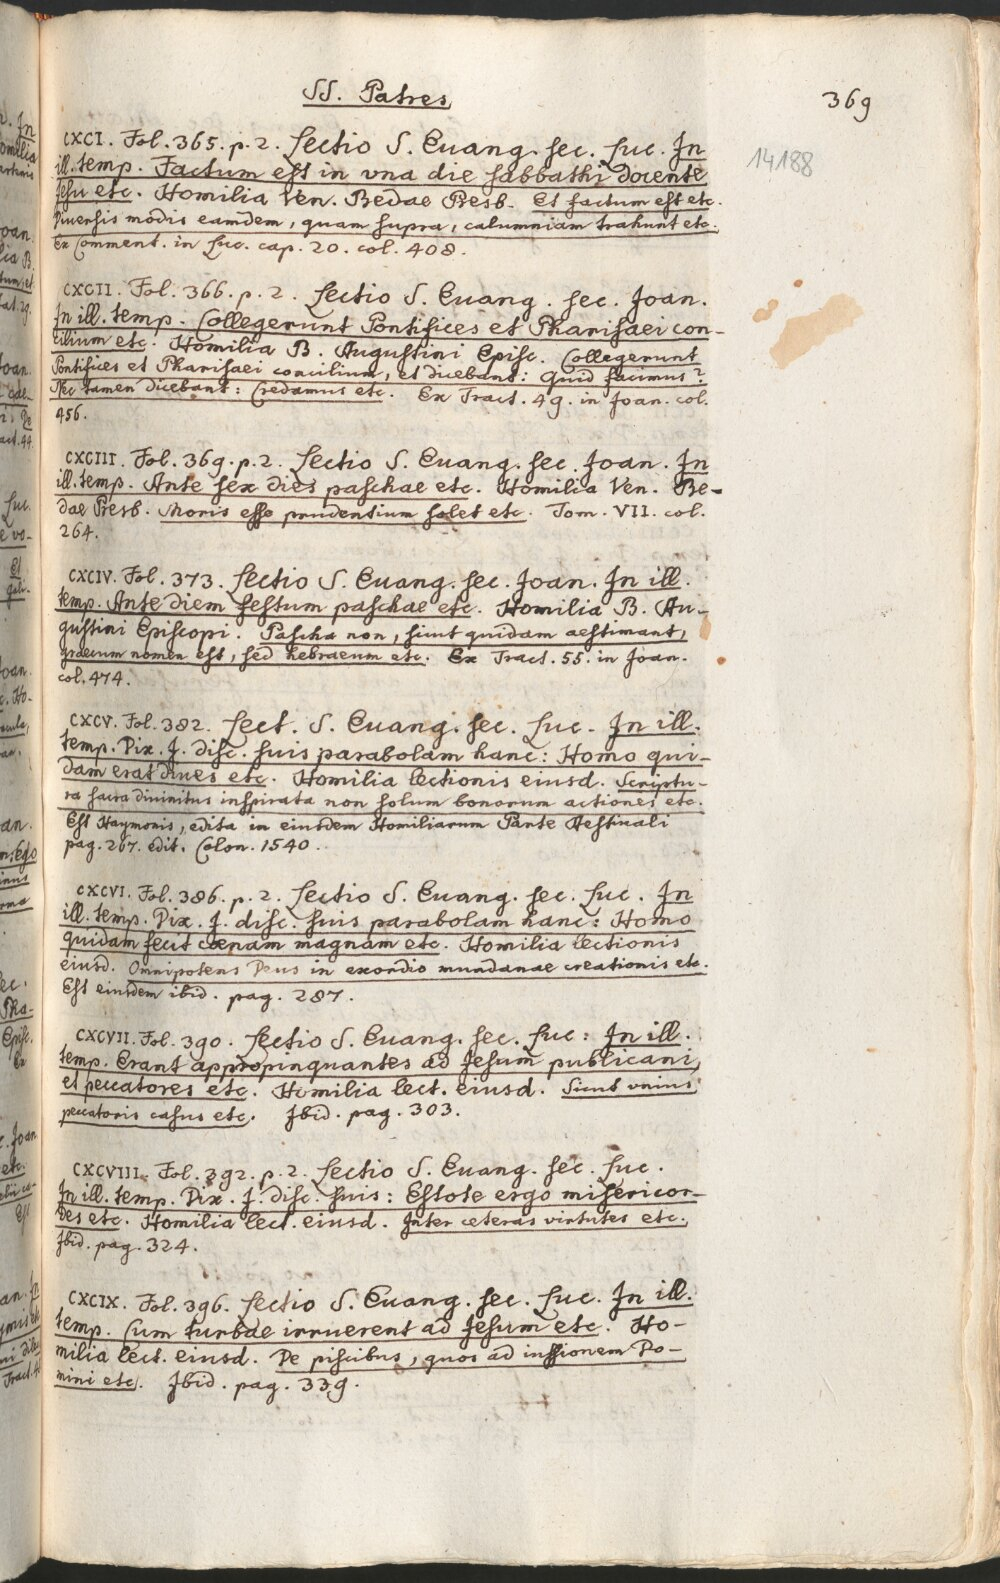 SS. Patres
369
14188
CXCI. Fol. 365. p. 2. Lectio S. Euang. sec. Luc. In
ill. temp. Factum est in vna die sabbathi docente
Jesu etc. Homilia Ven. Bedae Presb. Et factum est etc.
Diuersis modis eamdem, quam supra, calumniam trahunt etc.
Ex Comment. in Luc. cap. 20. col. 408.
CXCII. Fol. 366. p. 2. Lectio S. Euang. sec. Joan.
In ill. temp. Collegerunt Pontifices et Pharisaei con-
cilium etc. Homilia B. Augustini Episc. Collegerunt
Pontifices et Pharisaei concilium, et dicebant: Quid facimus?
Nec tamen dicebant: Credamus etc. Ex Tract. 49. in Joan. col.
456.
CXCIII. Fol. 369. p. 2. Lectio S. Euang. sec. Joan. In
ill. temp. Ante sex dies paschae etc. Homilia Ven. Be-
dae Presb. Moris esse prudentium solet etc. Tom. VII. col.
264.
CXCIV. Fol. 373. Lectio S. Euang. sec. Joan. In ill.
temp. Ante diem festum paschae etc. Homilia B. Au-
gustini Episcopi. Pascha non, sicut quidam aestimant,
graecum nomen est, sed hebraeum etc. Ex Tract. 55. in Joan.
col. 474.
CXCV. Fol. 382. Lect. S. Euang. sec. Luc. In ill.
temp. Dix. J. disc. suis parabolam hanc: Homo qui-
dam erat diues etc. Homilia lectionis eiusd. Scriptu-
ra sacra diuinitus inspirata non solum bonorum actiones etc.
Est Haymonis, edita in eiusdem Homiliarum Parte Aestiuali
pag. 267. edit. Colon. 1540.
CXCVI. Fol. 386. p. 2. Lectio S. Euang. sec. Luc. In
ill. temp. Dix. J. disc. suis parabolam hanc: Homo
quidam fecit coenam magnam etc. Homilia lectionis
eiusd. Omnipotens Deus in exordio mundanae creationis etc.
Est eiusdem ibid. pag. 287.
CXCVII. Fol. 390. Lectio S. Euang. sec. Luc: In ill.
temp. Erant appropinquantes ad Jesum publicani,
et peccatores etc. Homilia lect. eiusd. Sicut vnius
peccatoris casus etc. Jbid. pag. 303.
CXCVIII. Fol. 392. p. 2. Lectio S. Euang. sec. Luc.
In ill. temp. Dix. J. disc. suis: Estote ergo misericor-
des etc. Homilia lect. eiusd. Inter ceteras virtutes etc.
Jbid. pag. 324.
CXCIX. Fol. 396. Lectio S. Euang. sec. Luc. In ill.
temp. Cum turbae irruerent ad Jesum etc. Ho-
milia lect. eiusd. De piscibus, quos ad iussionem Do-
mini etc. Jbid. pag. 339.